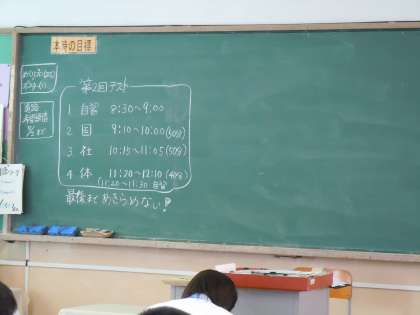 本時の目標
第2回テスト
1 自習 8:30〜9:00
2 国 9:10〜10:00(50分)
3 社 10:15〜11:05(50分)
4 体 11:20〜12:10(40分)
(11:20〜11:30 自習
最後まで あきらめない!